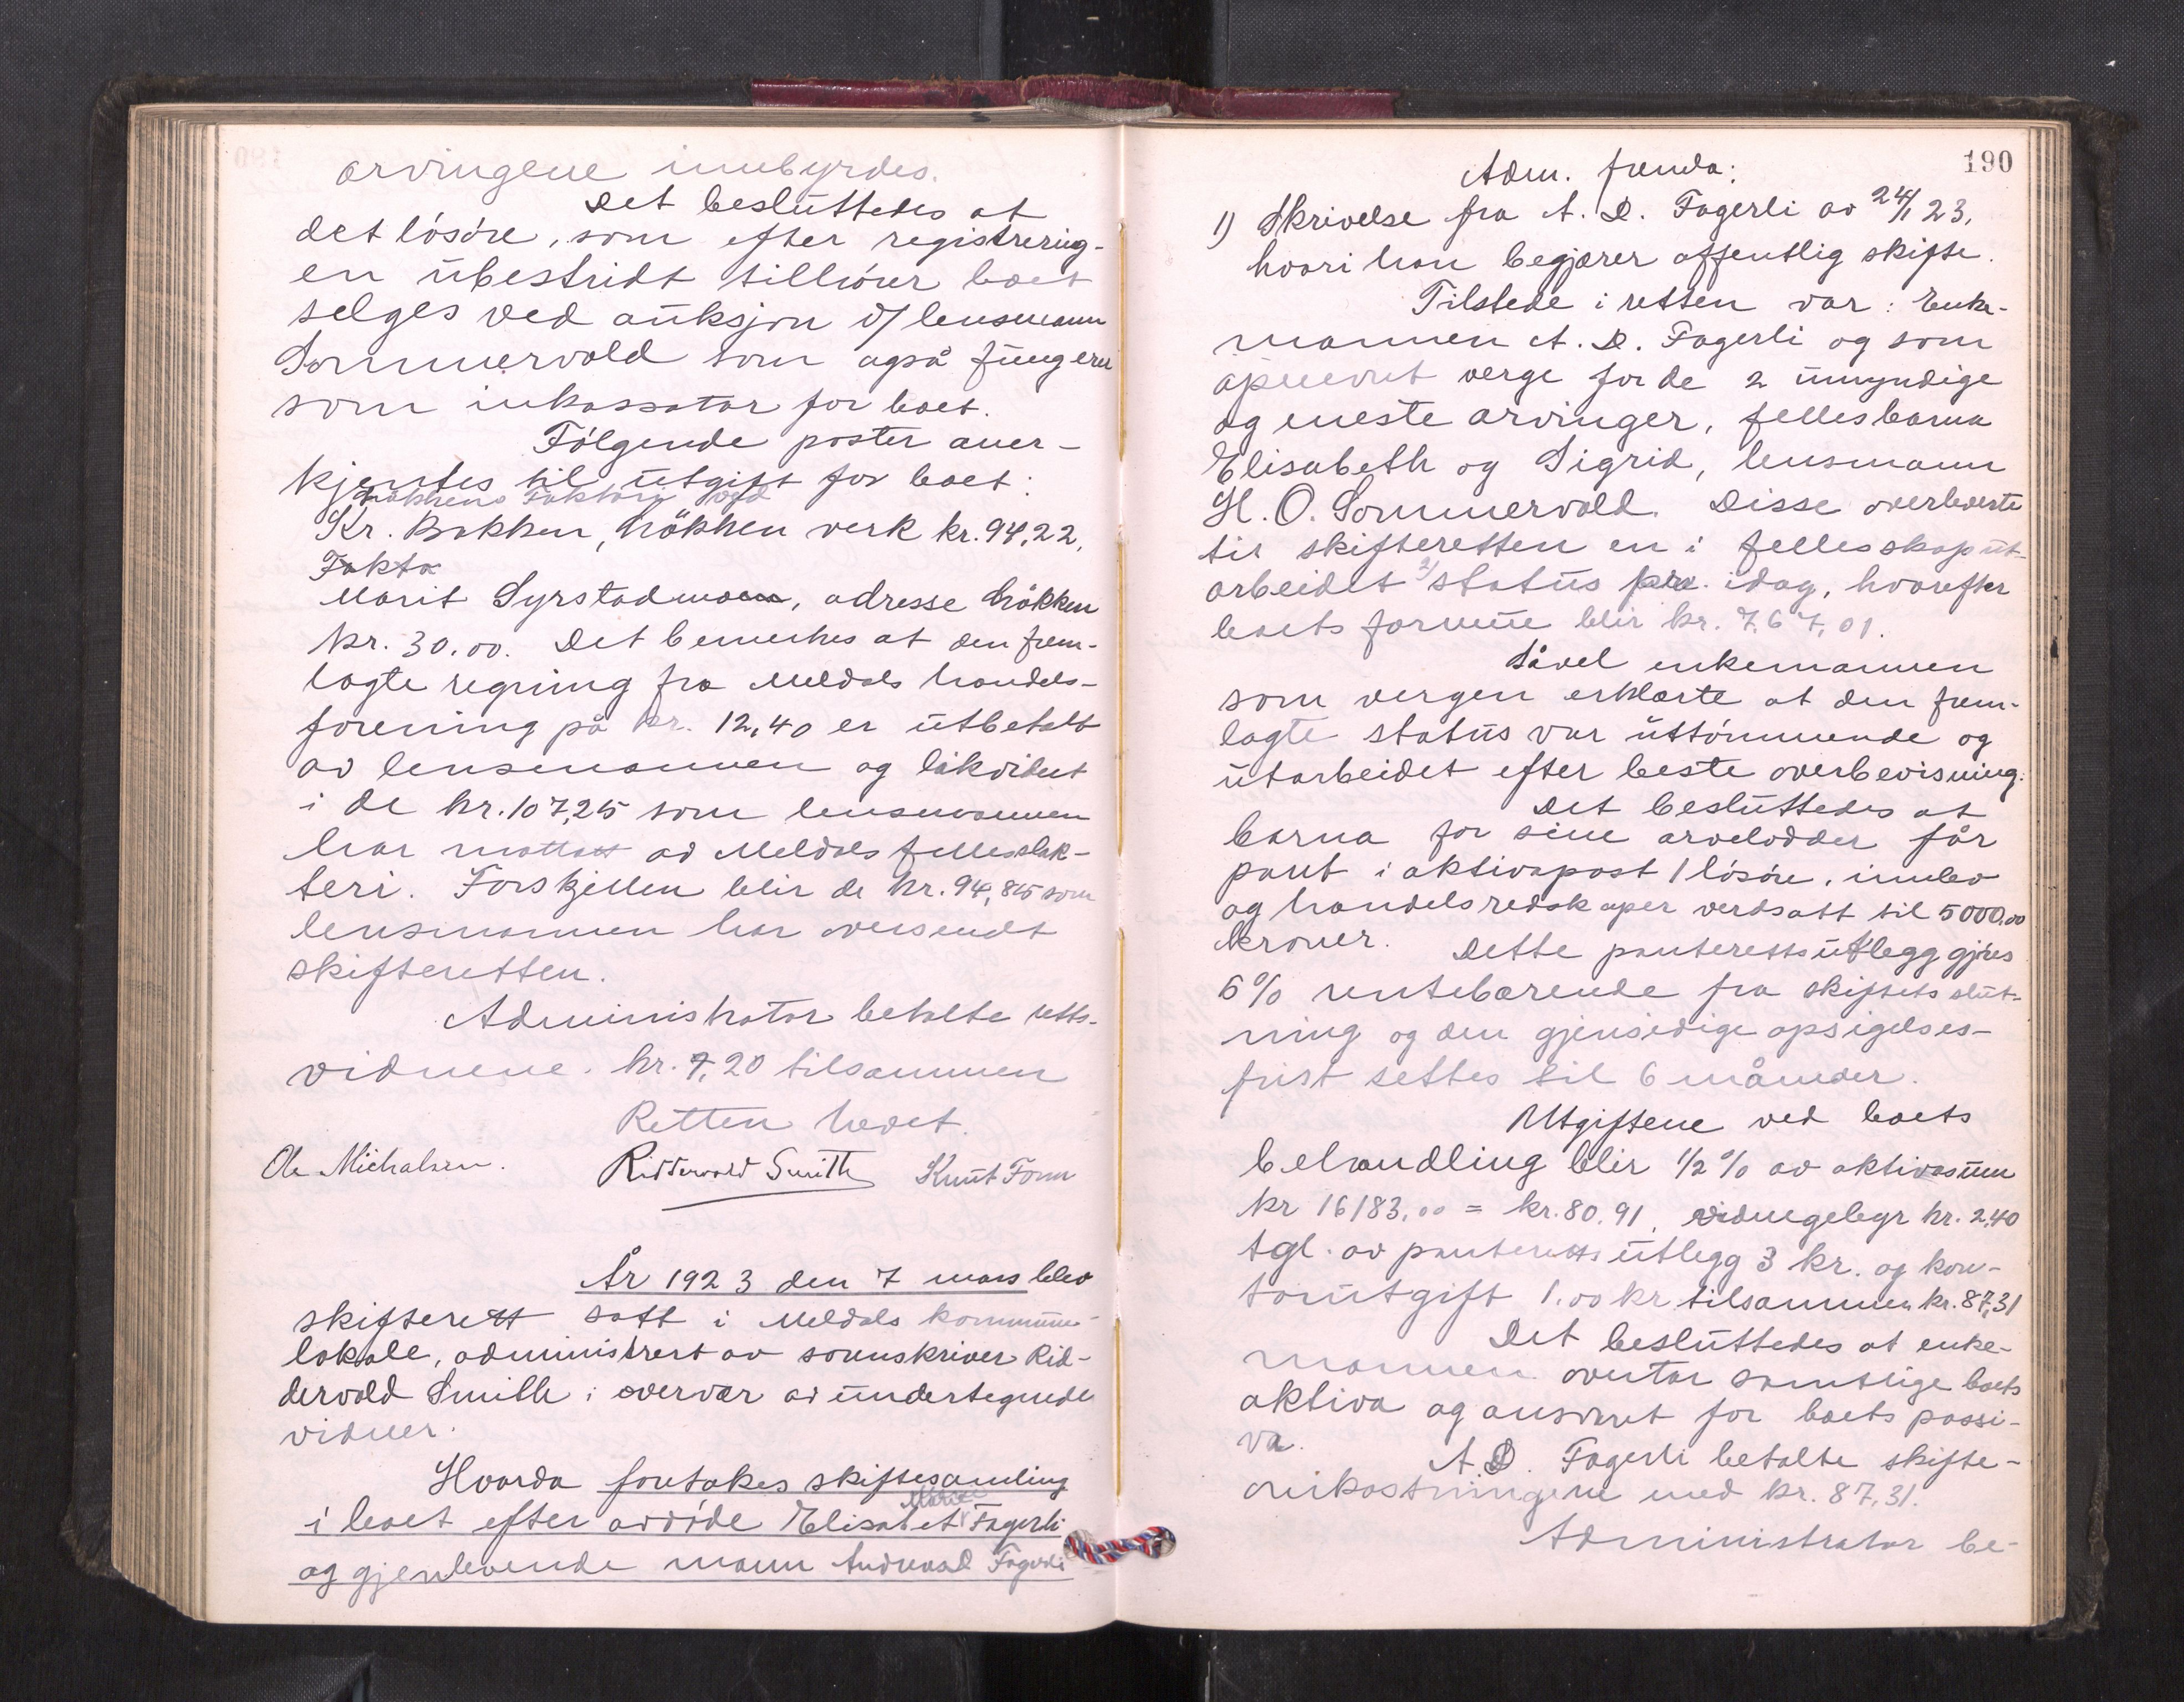 arvingene innbyrdes.
Det besluttedes at
det løsøre, som efter registrering-
en ubestridt tilhører boet
selges ved auksjon v/ lensmann
Sommervold som også fungerer
som inkassator for boet.
Følgende poster aner-
kjentes til utgift for boet:
Løkkens Faktori ved
Kr. Bakken, Løkken verk kr. 94,22,
Fakto
Marit Syrstadmoen, adresse Løkken
kr. 30.00. Det bemerkes at den frem-
lagte regning fra Meldals handels-
forening på kr. 12,40 er utbetalt
av lensmannen og likvidert
i de kr. 107,25 som lensmannen
har mottatt av Meldals fellesslak-
teri. Forskjellen blir de kr. 94,85 som
lensmannen har oversendt
skifteretten.
Administrator betalte retts-
vidnene. kr. 7,20 tilsammen
Retten hevet.
Ole Michalsen. Riddervold Smith Knut Fonn
År 1923 den 7 mars blev
skifterett satt i Meldals kommune-
lokale, administrert av sorenskriver Rid-
dervold Smith i overvær av undertegnede
vidner.
Hvorda foretokes skiftesamling
Marie
i boet efter avdøde Elisabet Fagerli
og gjenlevende mann Andreas D Fagerli
190
Adm. fremla:
1) Skrivelse fra A. D. Fagerli av 24/1 23,
hvori han begjærer offentlig skifte.
Tilstede i retten var: Enke-
mannen A. D. Fagerli og som
opnevnt verge for de 2 umyndige
og eneste arvinger, fellesbarna
Elisabeth og Sigrid, lensmann
H. O. Sommervold. Disse overleverte
til skifteretten en i fellesskap ut-
arbeidet 2) status pr. idag, hvorefter
boets formue blir kr. 767,01.
Såvel enkemannen
som vergen erklærte at den frem-
lagte status var uttømmende og
utarbeidet efter beste overbevisning.
Det besluttedes at
barna for sine arvelodder får
pant i aktivapost 1 løsøre, innbo
og handelsredskaper verdsatt til 5000,00
kroner. Dette panterettsutlegg gjøres
6% rentebærende fra skiftets slut-
ning og den gjensidige opsigelses-
frist settes til 6 måneder.
Utgiftene ved boets
behandling blir 1/2 % av aktivasum
kr 16183,00 = kr. 80.91, vidnegebyr kr. 2,40
tgl. av panteretts utlegg 3 kr. og kon-
torutgift 1.00 kr tilsammen kr. 87,31
Det besluttedes at enke-
mannen overtar samtlige boets
aktiva og ansvaret for boets passi-
va.
A D. Fagerli betalte skifte-
omkostningene med kr. 87,31.
Administrator be-